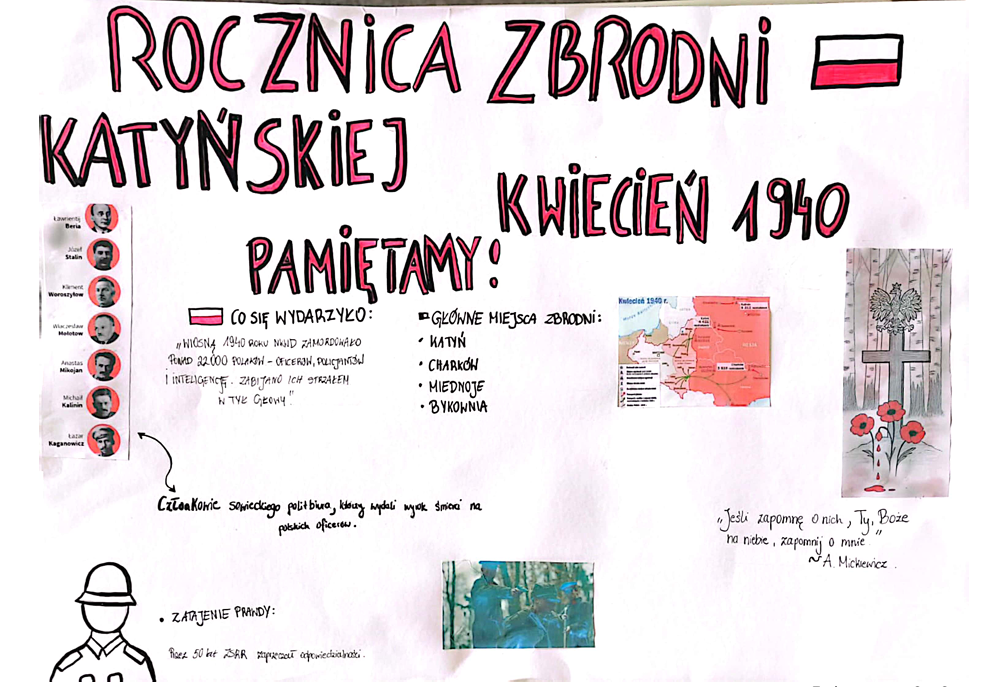 ROCZNICA ZBRODNI
KATYŃSKIEJ
KWIECIEŃ 1940
PAMIĘTAMY!
Ławrientij
Beria
Józef
Stalin
Kliment
Woroszyłow
Wiaczesław
Mołotow
Anastas
Mikojan
Michaił
Kalinin
Łazar
Kaganowicz
CO SIĘ WYDARZYŁO:
„WIOSNĄ 1940 ROKU NKWD ZAMORDOWAŁO
PONAD 22000 POLAKÓW - OFICERÓW, POLICJANTÓW
I INTELIGENCJĘ. ZABIJANO ICH STRZAŁEM
W TYŁ GŁOWY!"
GŁÓWNE MIEJSCA ZBRODNI:
• KATYŃ
• CHARKÓW
• MIEDNOJE
• BYKOWNIA
Kwiecień 1940 r.
Członkowie sowieckiego politbiura, którzy wydali wyrok śmierci na
polskich oficerów.
„Jeśli zapomnę o nich, Ty, Boże
na niebie, zapomnij o mnie"
~ A. Mickiewicz.
• ZATAJENIE PRAWDY:
Przez 50 lat ZSRR zaprzeczał odpowiedzialności.